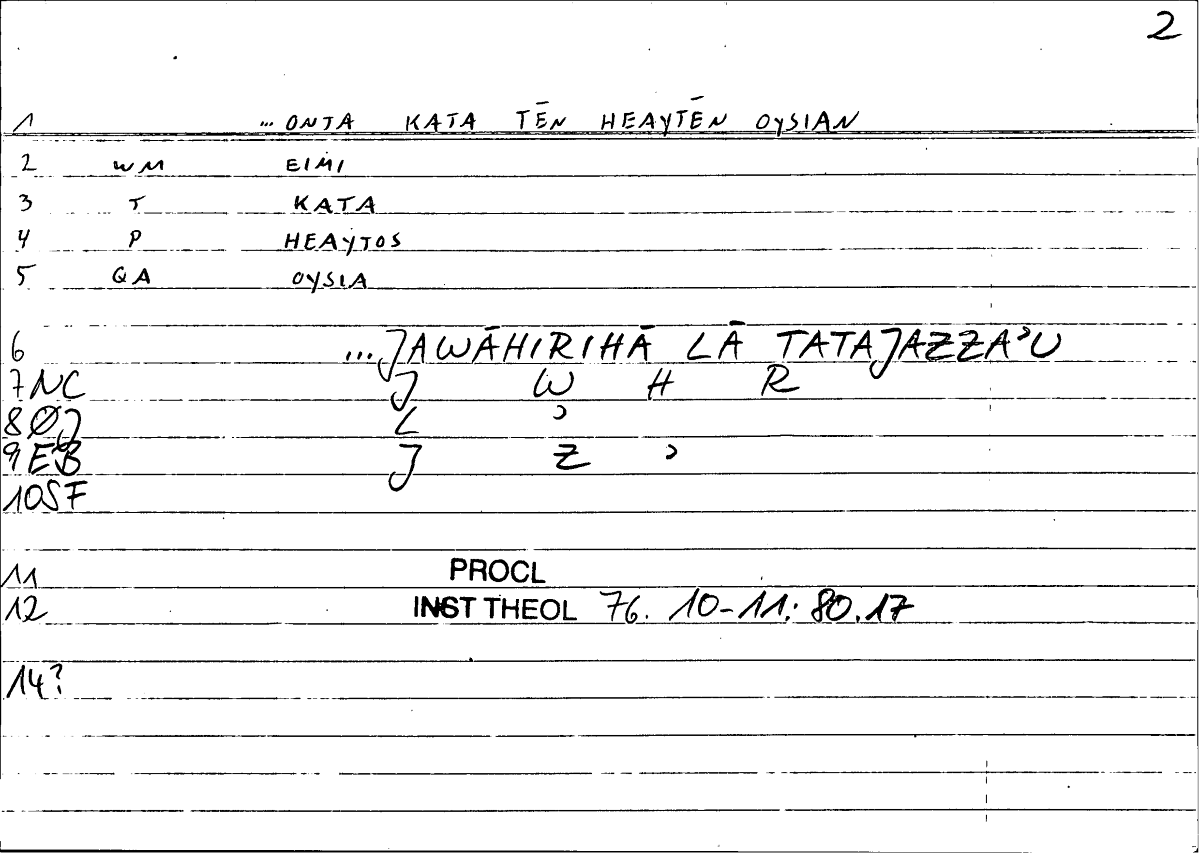 2
1 ... ONTA KATA TĒN HEAYTĒN OYSIAN
2 WM EIMI
3 T KATA
4 P HEAYTOS
5 QA OYSIA
6 ...JAWĀHIRIHĀ LĀ TATAJAZZAʾU
7 NC J W H R
8 ØJ L ʾ
9 EB J Z ʾ
10 SF
11 PROCL
12 INST THEOL 76. 10-11; 80.17
14?